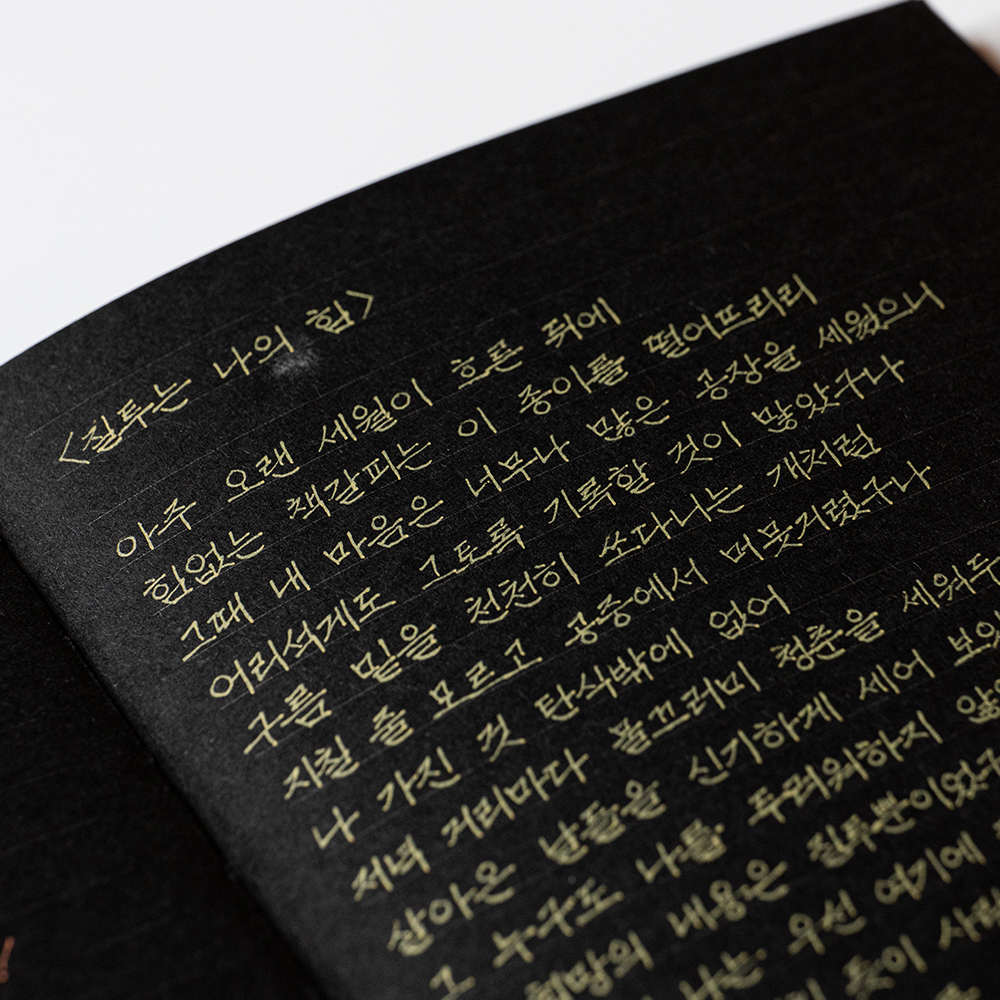 <질투는 나의 힘>
아주 오랜 세월이 흐른 뒤에
힘없는 책갈피는 이 종이를 떨어뜨리리
그때 내 마음은 너무나 많은 공장을 세웠으니
어리석게도 그토록 기록할 것이 많았구나
구름 밑을 천천히 쏘다니는 개처럼
지칠 줄 모르고 공중에서 머뭇거렸구나
나 가진 것 탄식밖에 없어
저녁 거리마다 물끄러미 청춘을 세워두
살아온 날들을 신기하게 세어 보았
그 누구도 나를 두려워하지 않았
희망의 내용은 질투뿐이었구
나는 우선 여기에
듯이 사랑